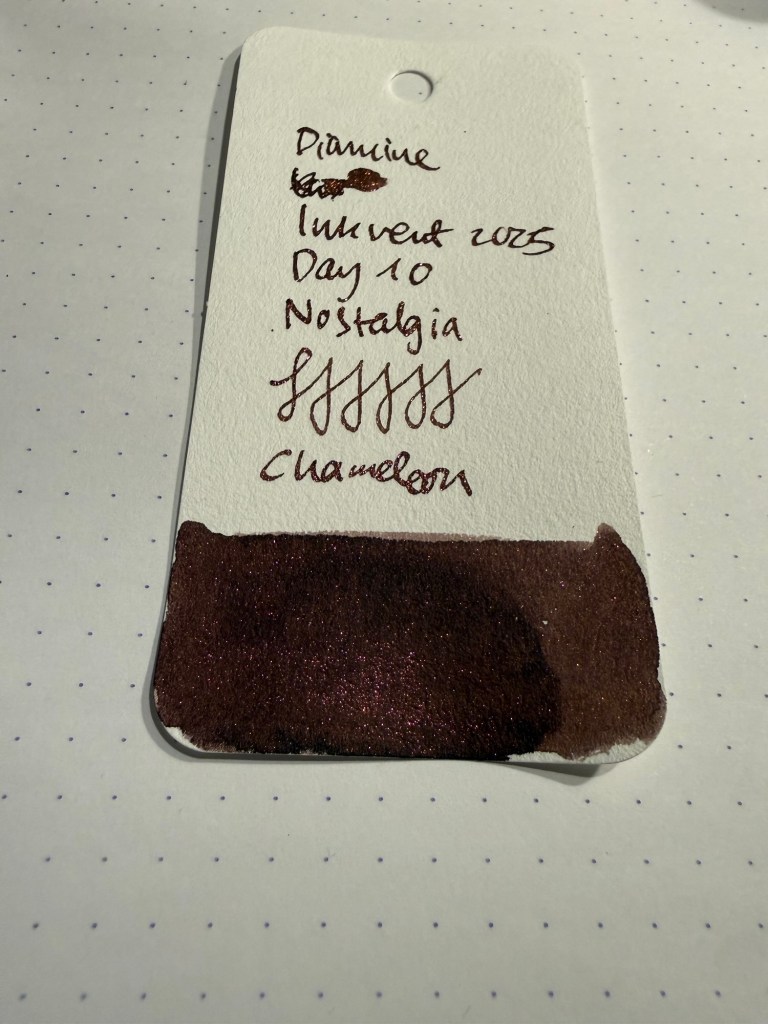 Diamine
Inkvent 2025
Day 10
Nostalgia
Chameleon